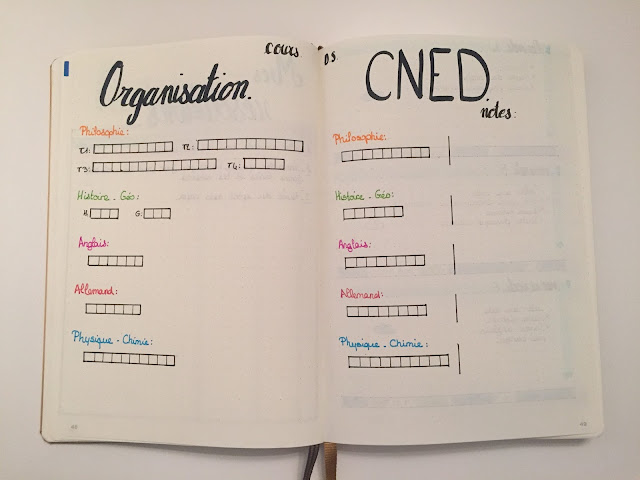 cours
Organisation.
Philosophie:
T1:
T2:
T3:
T4:
Histoire - Géo:
H:
G:
Anglais:
Allemand:
Physique - Chimie:
D.S.
CNED
notes:
Philosophie:
Histoire - Géo:
Anglais:
Allemand:
Physique - Chimie: